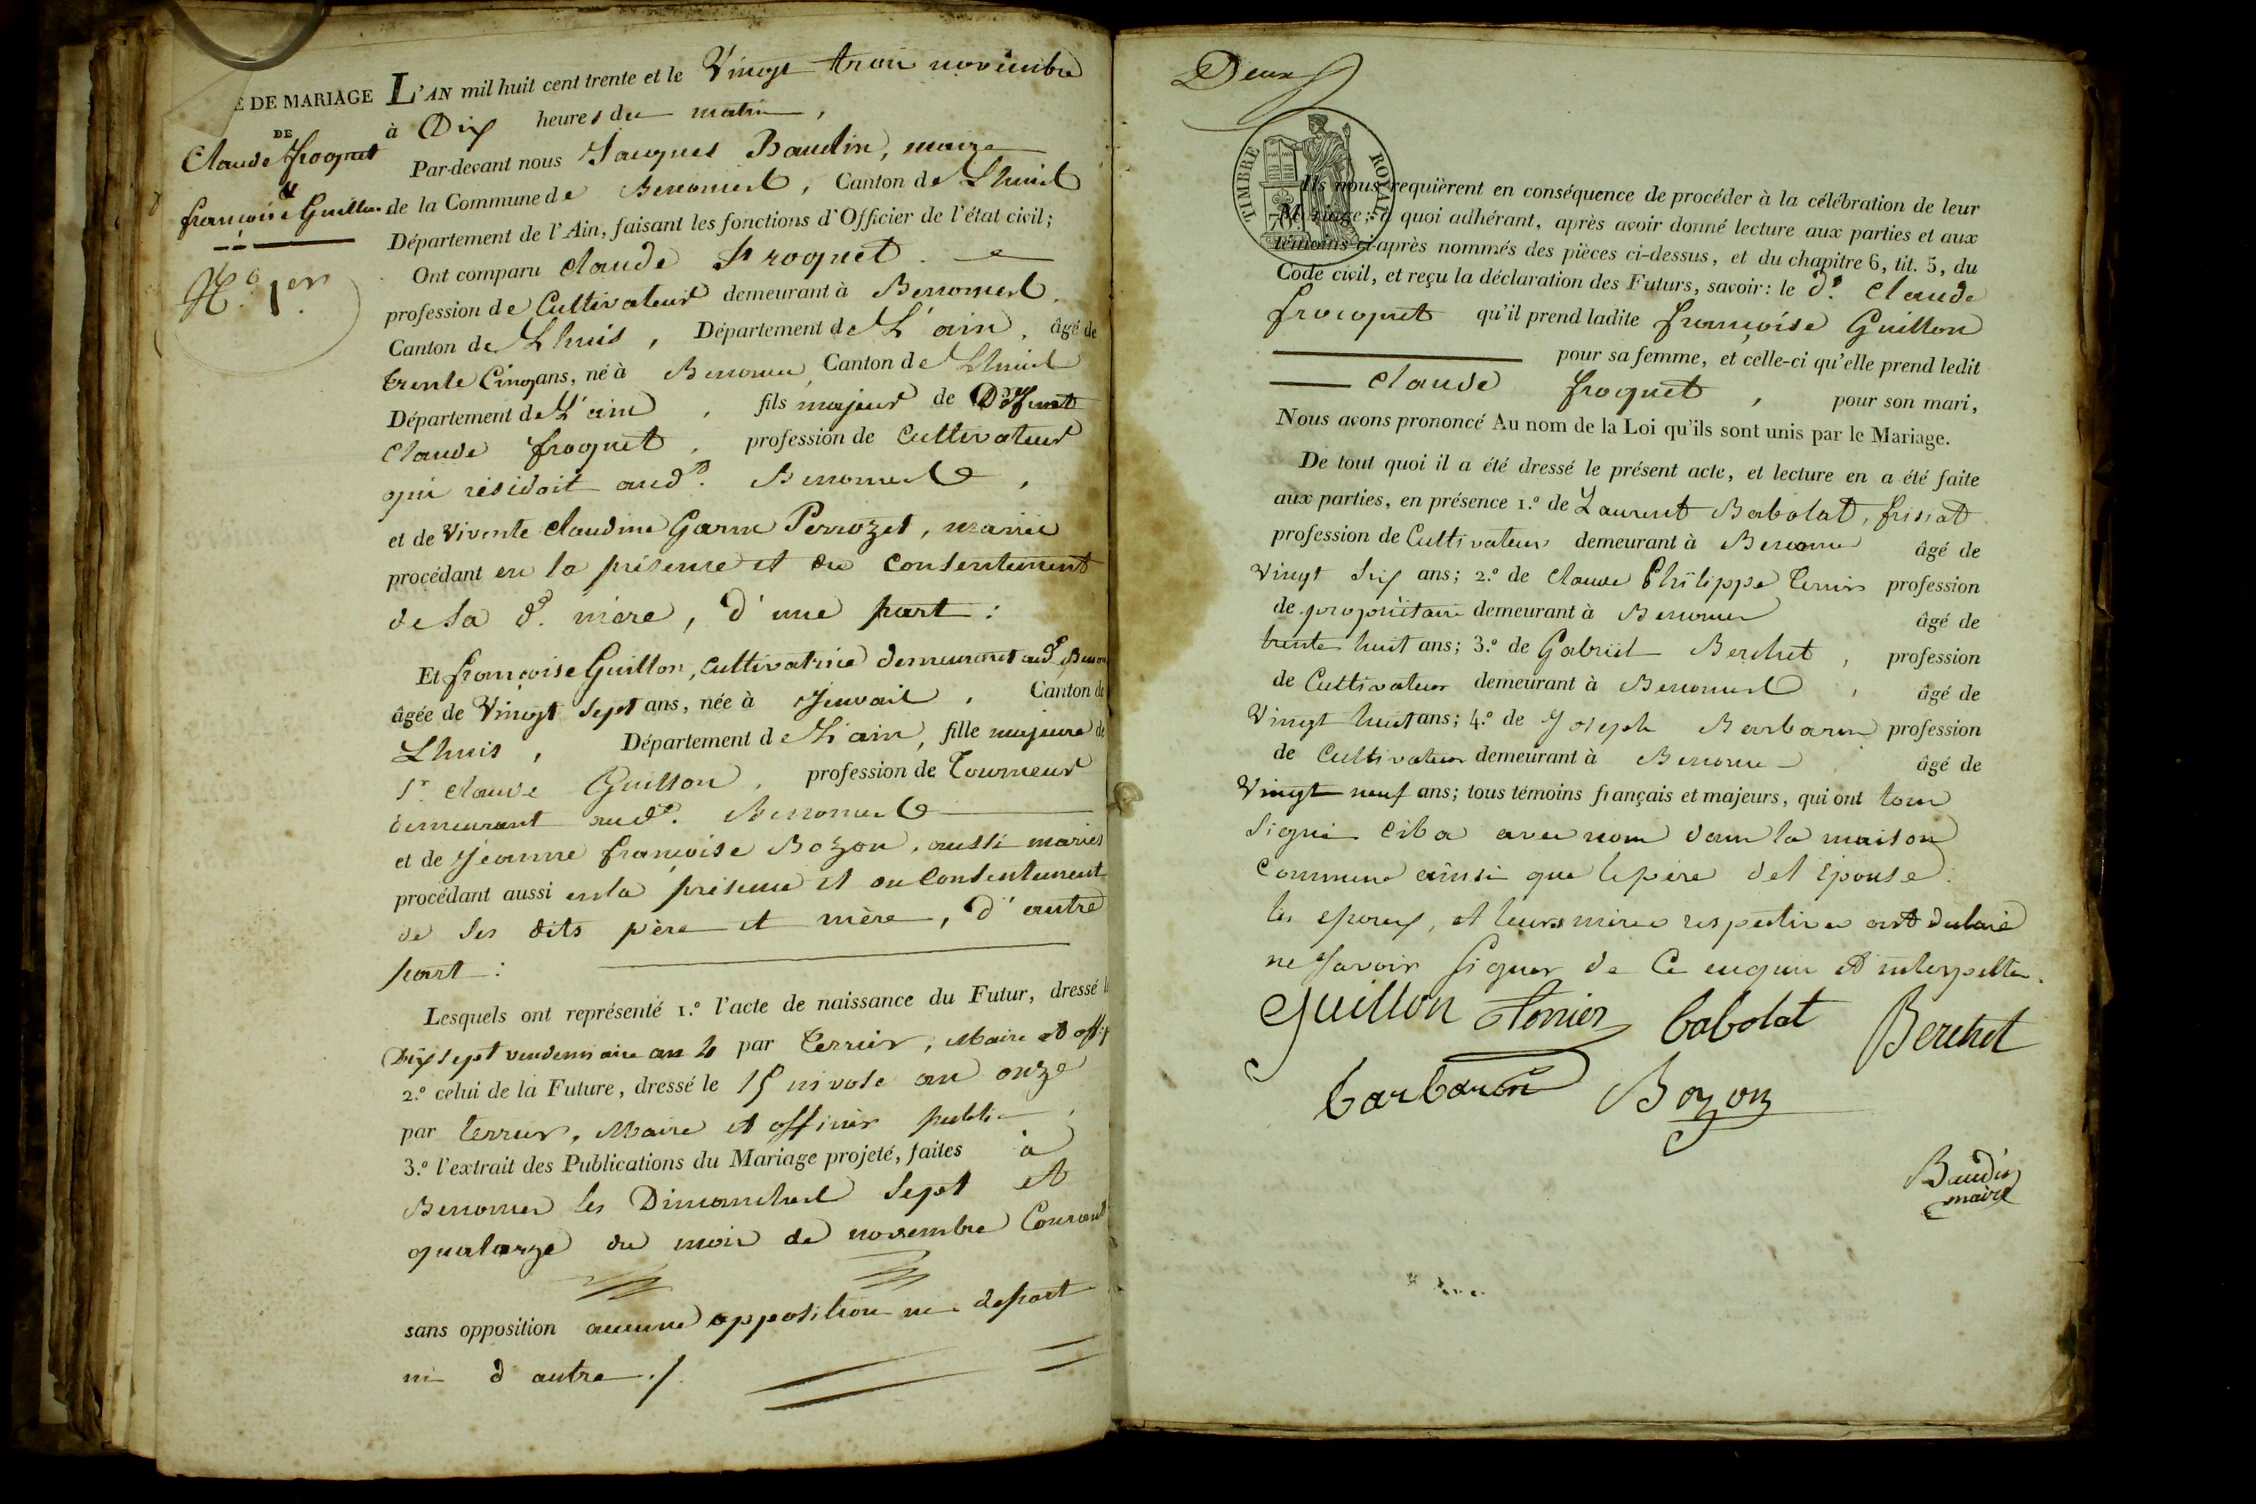 E DE MARIAGE
DE
Claude froquet
&
françoise Guillon
N.o 1er
L'AN mil huit cent trente et le Vingt trois novembre
à Dix heures du matin,
Par-devant nous Jacques Baudin, maire
de la Commune de Benonces, Canton de Lhuis
Département de l'Ain, faisant les fonctions d'Officier de l'état civil;
Ont comparu Claude froquet
profession de Cultivateur demeurant à Benonces
Canton de Lhuis, Département de L'ain, âgé de
trente Cinq ans, né à Benonces, Canton de Lhuis
Département de L'ain, fils majeur de Défunt
Claude froquet, profession de Cultivateur
qui résidait aud.t Benonces,
et de Vivente Claudine Perrozet, mariée
procédant en la présence et du Consentement
de sa d.e mère, d'une part:
Et françoise Guillon, Cultivatrice demeurant aud.t
âgée de Vingt Sept ans, née à, Canton de
Lhuis, Département de L'ain, fille majeure de
S.r Claude Guillon, profession de Tourneur
demeurant aud.t Benonces
et de Jeanne françoise Bozon, aussi mariés
procédant aussi en la présence et du Consentement
de Ses dits père et mère, d'autre
part:
Lesquels ont représenté 1.o l'acte de naissance du Futur, dressé le
Dix Sept vendemiaire an 4 par terrier, Maire et
2.o celui de la Future, dressé le 15 nivose an onze
par terrier, Maire et officier public
3.o l'extrait des Publications du Mariage projeté, faites à
Benonces les Dimanches Sept et
quatorze du mois de novembre Courant
sans opposition aucune opposition ne depart
ni d'autre ./.
Deux
TIMBRE ROYAL
Ils nous requièrent en conséquence de procéder à la célébration de leur
Mariage; à quoi adhérant, après avoir donné lecture aux parties et aux
témoins ci-après nommés des pièces ci-dessus, et du chapitre 6, tit. 5, du
Code civil, et reçu la déclaration des Futurs, savoir: le d.t Claude
froquet qu'il prend ladite françoise Guillon
pour sa femme, et celle-ci qu'elle prend ledit
Claude froquet, pour son mari,
Nous avons prononcé Au nom de la Loi qu'ils sont unis par le Mariage.
De tout quoi il a été dressé le présent acte, et lecture en a été faite
aux parties, en présence 1.o de Laurent Babolat, frisiat
profession de Cultivateur demeurant à Benonces âgé de
Vingt Six ans; 2.o de Claude Philippe terrier profession
de propriétaire demeurant à Benonces âgé de
trente huit ans; 3.o de Gabriel Berchet, profession
de Cultivateur demeurant à Benonces, âgé de
Vingt huit ans; 4.o de Joseph Barbarin profession
de Cultivateur demeurant à Benonces âgé de
Vingt neuf ans; tous témoins français et majeurs, qui ont tous
Signé avec nous dans la maison
Commune ainsi que le père del Epouse.
les epoux, et leurs mères respective ont declaré
ne Savoir Signer de Ce enquis et interpellés.
Guillon Terrier babolat Berchet
barbarin Bozon
Baudin
maire